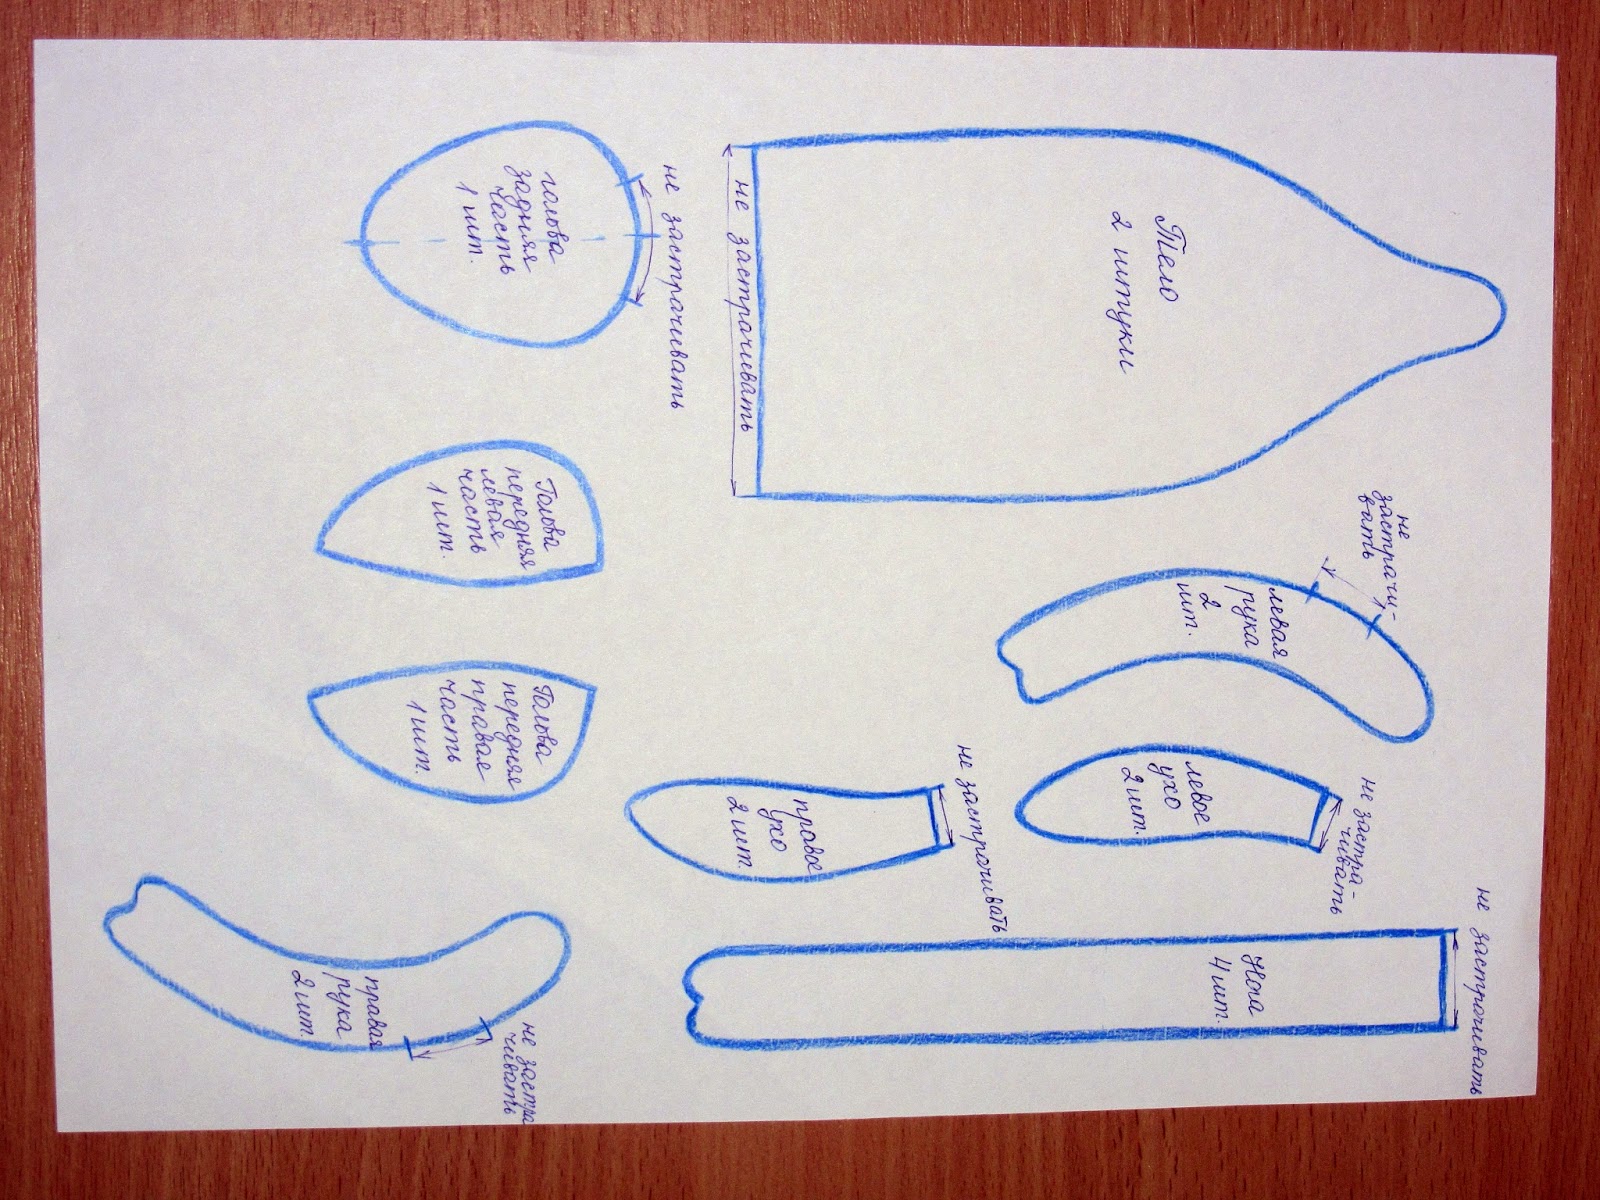 голова
задняя
часть
1 шт.
не застрачивать
не застрачивать
Тело
2 штуки
Голова
передняя
левая
часть
1 шт.
Голова
передняя
правая
часть
1 шт.
не
застрачи-
вать
левая
рука
2
шт.
левое
ухо
2 шт.
не застра-
чивать
правое
ухо
2 шт.
не застрачивать
Нога
4 шт.
не застрочивать
правая
рука
2 шт.
не застра
чивать